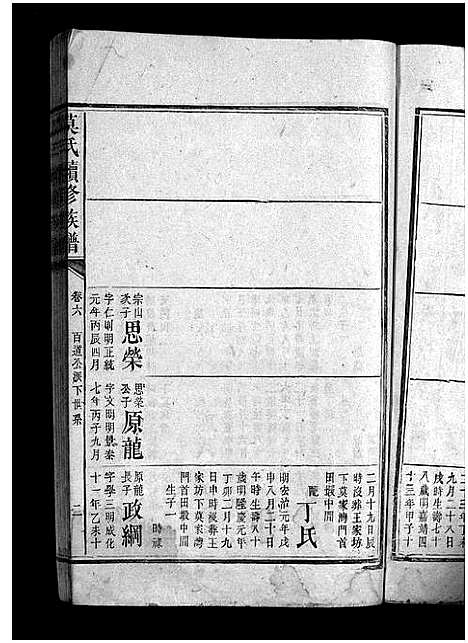 十三年甲子十
八歲明嘉靖四
戌時生壽七十
九月二十八日
二月十九日辰
時沒葬王家坊
下莫家灣門首
田墩中間
配丁氏
明弘治元年戊
申八月二十日
午時生壽八十
歲明隆慶元年
丁卯二月十九
日申時沒葬王
家坊下莫家灣
門首田墩中間
生子一
時祿
原龍長子政綱
字學三明成化
十一年乙未十
思榮公子原龍
字文明明景泰
七年丙子九月
宗山次子思榮
字仁明正統
元年丙辰四月
莫氏續修族譜
卷六
百道公派下世系
二